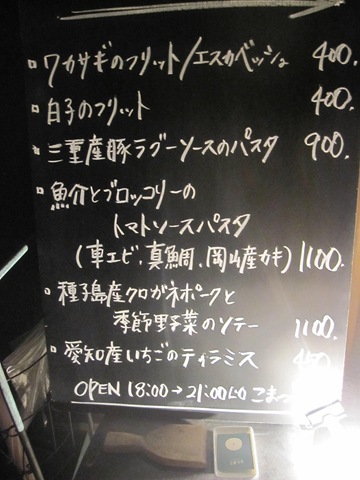 ▫ ワカサギのフリット/エスカベッシュ 400.
▫ 白子のフリット 400.
▫ 三重産豚ラグーソースのパスタ 900.
▫ 魚介とブロッコリーの
トマトソースパスタ
(車エビ、真鯛、岡山産カキ) 1100.
▫ 種子島産クロガネポークと
季節野菜のソテー 1100.
▫ 愛知産いちごのティラミス 450.
OPEN 18:00→21:00(LO)